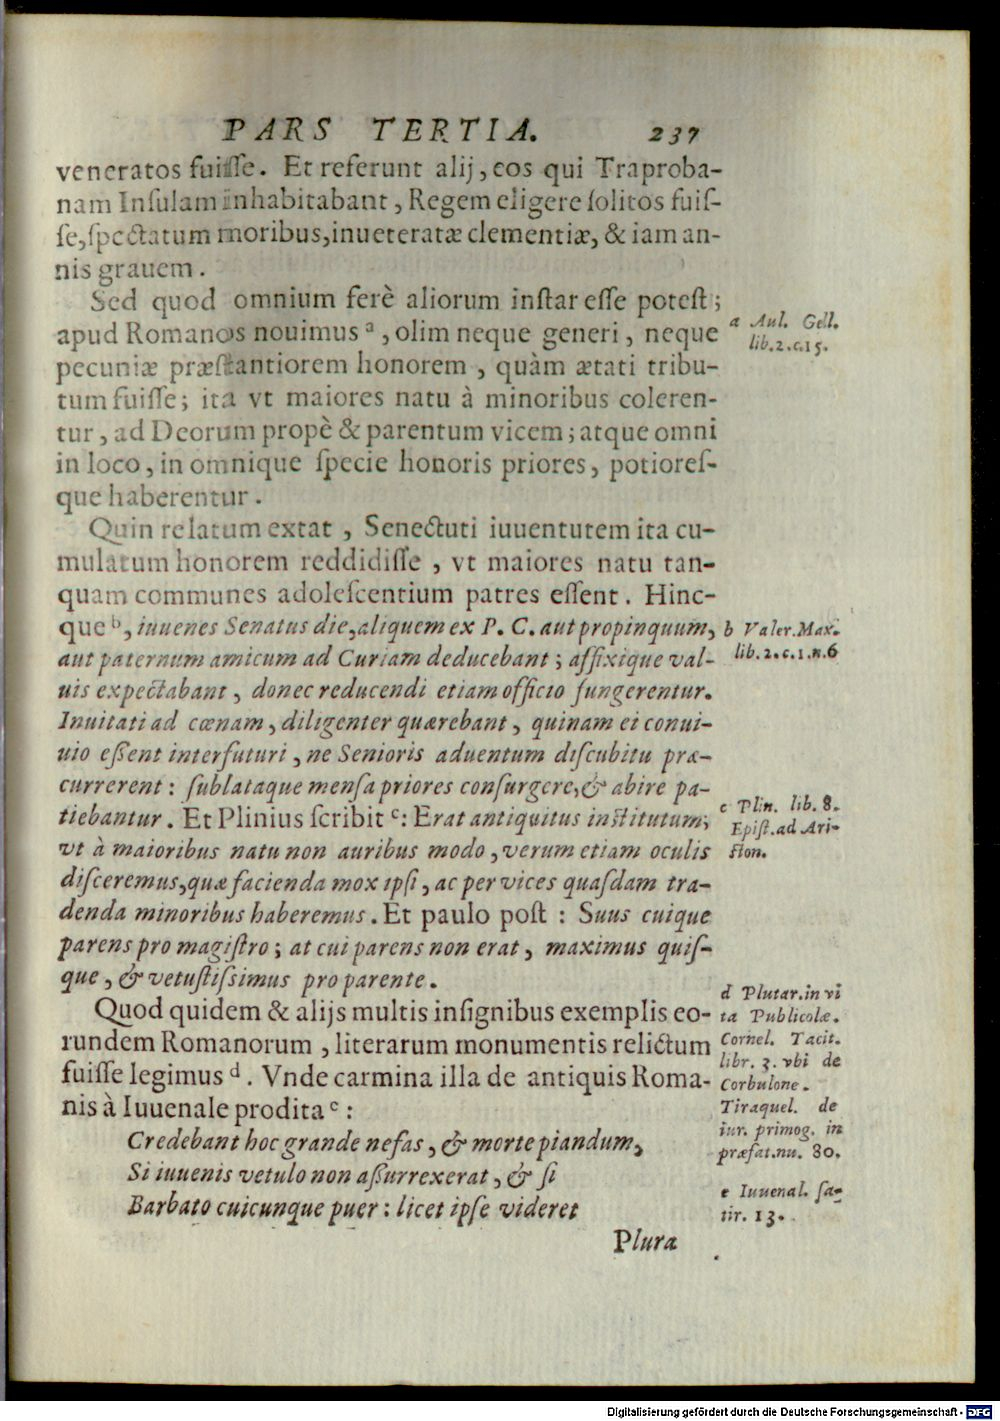 PARS TERTIA. 237
veneratos fuisse. Et referunt alij, eos qui Traproba-
nam Insulam inhabitabant, Regem eligere solitos fuis-
se, spectatum moribus, inueteratæ clementiæ, & iam an-
nis grauem.
Sed quod omnium ferè aliorum instar esse potest;
apud Romanos nouimus a, olim neque generi, neque
pecuniæ præstantiorem honorem, quàm ætati tribu-
tum fuisse; ita vt maiores natu à minoribus coleren-
tur, ad Deorum propè & parentum vicem; atque omni
in loco, in omnique specie honoris priores, potiores-
que haberentur.
Quin relatum extat, Senectuti iuuentutem ita cu-
mulatum honorem reddidisse, vt maiores natu tan-
quam communes adolescentium patres essent. Hinc-
que b, iuuenes Senatus die, aliquem ex P. C. aut propinquum,
aut paternum amicum ad Curiam deducebant; affixique val-
uis expectabant, donec reducendi etiam officio fungerentur.
Inuitati ad cœnam, diligenter quærebant, quinam ei conui-
uio essent interfuturi, ne Senioris aduentum discubitu præ-
currerent: sublataque mensa priores consurgere, & abire pa-
tiebantur. Et Plinius scribit c: Erat antiquitus institutum,
vt à maioribus natu non auribus modo, verum etiam oculis
disceremus, quæ facienda mox ipsi, ac per vices quasdam tra-
denda minoribus haberemus. Et paulo post: Suus cuique
parens pro magistro; at cui parens non erat, maximus quis-
que, & vetustissimus pro parente.
Quod quidem & alijs multis insignibus exemplis eo-
rundem Romanorum, literarum monumentis relictum
fuisse legimus d. Vnde carmina illa de antiquis Roma-
nis à Iuuenale prodita e:
Credebant hoc grande nefas, & morte piandum,
Si iuuenis vetulo non assurrexerat, & si
Barbato cuicunque puer: licet ipse videret
Plura
a Aul. Gell.
lib. 2. c. 15.
b Valer. Max.
lib. 2. c. 1. n. 6
c Plin. lib. 8.
Epist. ad Ari-
ston.
d Plutar. in vi
ta Publicolæ.
Cornel. Tacit.
libr. 3. vbi de
Corbulone.
Tiraquel. de
iur. primog. in
præfat. nu. 80.
e Iuuenal. sa-
tir. 13.
Digitalisierung gefördert durch die Deutsche Forschungsgemeinschaft - DFG